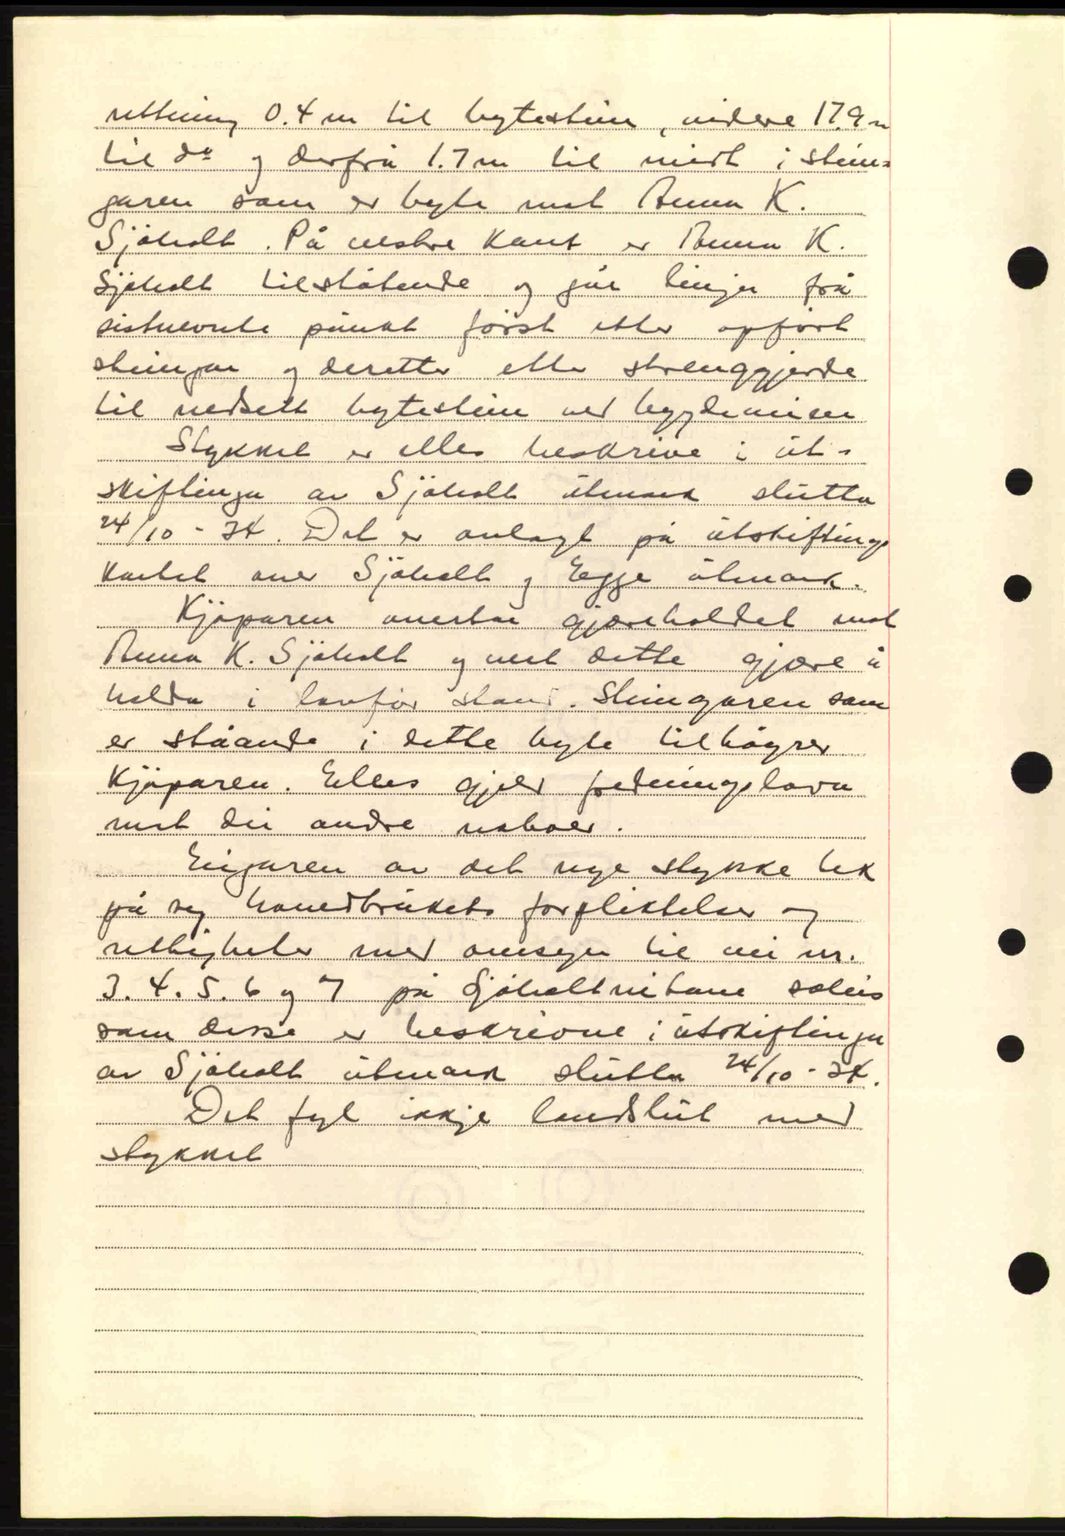 retning 0.4 m til bytestein, vidare 17.9 m
til do og derfrå 1.7 m til midt i stein-
garen som er byte mot Anna K.
Sjøholt. På vestre kant er Anna K.
Sjøholt tilstøtende og går linja frå
sistnevnte punkt først etter opført
steingar og deretter etter strenggjerde
til nedsett bytestein ved
Stykket er elles beskrive i ut-
skiftinga av Sjøholt utmark slutta
24/10 - 34. Det er avlagt på utskiftings
kartet over Sjøholt og Egge utmark.
Kjøparen overtar gjæreholdet mot
Anna K. Sjøholt og vert dette gjære å
halda i lovfør stand. Steingaren som
er ståande i dette byte tilhøyrer
Kjøparen. Elles gjeld fredningslova
mot dei andre naboer.
Eigaren av det nye stykke tek
på seg hovedbrukets forpliktelser og
rettigheter med omsyn til vei nr.
3. 4. 5. 6 og 7 på Sjøholtvitane soleis
som disse er beskrivne i utskiftinga
av Sjøholt utmark slutta 24/10 - 34.
Det fyl ikkje landslut med
stykket